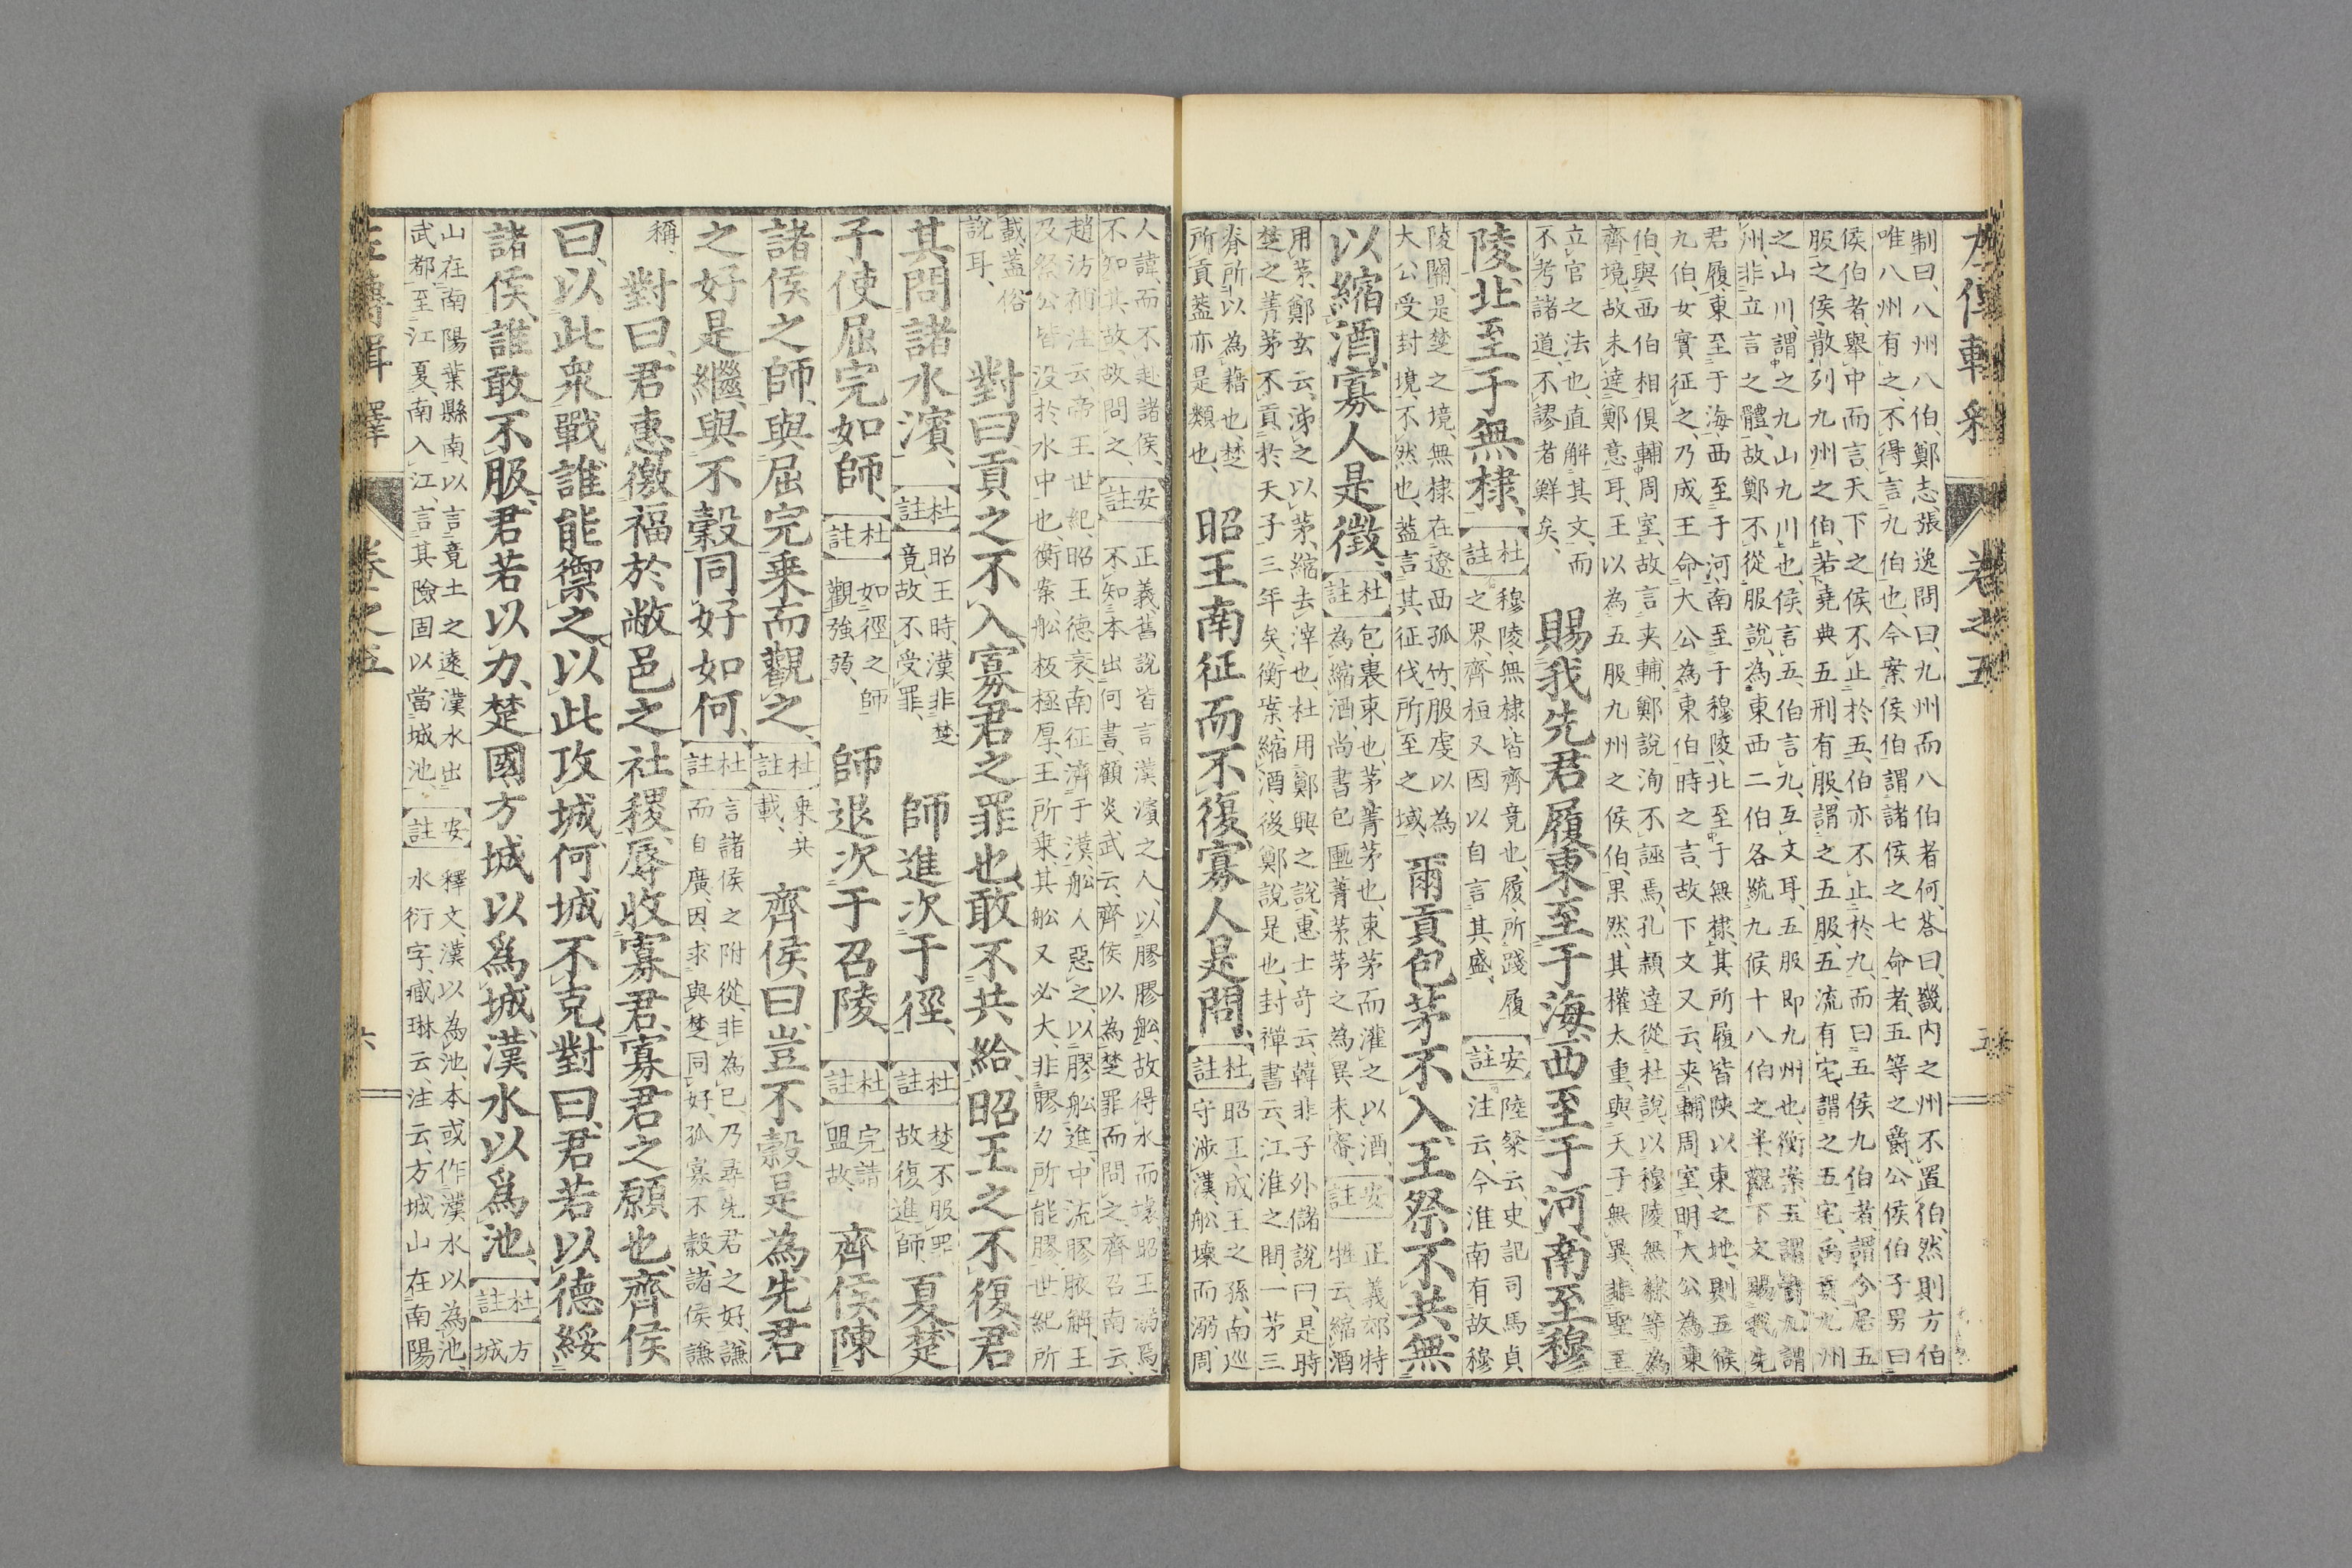 左傳輯釋 卷之五 五
制曰、八州八伯、鄭志、張逸問曰、九州而八伯者何、答曰、畿内之州不置伯、然則方伯
唯八州有之、不得言九伯也、今案侯伯謂諸侯之七命者、五等之爵、公侯伯子男曰
侯伯者、舉中而言、天下之侯不止於五、伯亦不止於九、而曰五侯九伯者、謂今居五
服之侯、散列九州之伯、若堯典五刑有服、謂之五服、五流有宅、謂之五宅、禹貢九州
之山川、謂之九山九川也、侯言五、伯言九、互文耳、五服即九州也、衡案、五謂
州、非立言之體、故鄭不從服說、為東西二伯各統九侯十八伯之半、觀下文賜我先
君履、東至于海、西至于河、南至于穆陵、北至于無棣、其所履皆陝以東之地、則五侯
九伯、女實征之、乃成王命大公為東伯時之言、故下文又云、夾輔周室、明大公為東
伯、與西伯相俱輔周室、故言夾輔、鄭說洵不誣焉、孔穎達從杜說、以穆陵無棣等為
齊境、故未達鄭意耳、王以為五服九州之侯伯、果然、其權太重、與天子無異、非聖王
立官之法也、直解其文、而
不考諸道、不謬者鮮矣、
賜我先君履、東至于海、西至于河、南至于穆
陵、北至于無棣、
【杜註】
穆陵無棣皆齊竟也、履、所踐履
之界、齊桓又因以自言其盛、
【安註】
陸粲云、史記司馬貞
注云、今淮南有故穆
陵關、是楚之境、無棣在遼西孤竹、服虔以為
大公受封境、不然也、蓋言其征伐所至之域、
爾貢包茅不入、王祭不共、無
以縮酒、寡人是徵、
【杜註】
包、裹束也、茅、菁茅也、束茅而灌之以酒、
為縮酒、尚書包匭菁茅、茅之為異未審、
【安註】
正義、郊特
牲云、縮酒
用茅、鄭玄云、泲之以茅、縮去滓也、杜用鄭興之說、惠士奇云、韓非子外儲說曰、是時
楚之菁茅不貢於天子三年矣、衡案、縮酒、後鄭說是也、封禪書云、江淮之間、一茅三
脊、所以為藉也、楚
所貢蓋亦是類也、
昭王南征而不復、寡人是問、
【杜註】
昭王、成王之孫、南巡
守渉漢、舩壞而溺、周
人諱、而不赴諸侯、
不知其故、故問之、
【安註】
正義、舊說皆言漢濱之人、以膠膠舩、故得水而壞、昭王溺焉、
不知本出何書、顧炎武云、齊侯以為楚罪而問之、齊召南云、
趙汸補注云、帝王世紀、昭王德衰、南征、濟于漢、舩人惡之、以膠舩進、中流膠液解、王
及祭公皆沒於水中也、衡案、舩板極厚、王所乘、其舩又必大、非膠力所能膠、世紀所
載、蓋俗
說耳、
對曰、貢之不入、寡君之罪也、敢不共給、昭王之不復、君
其問諸水濱、
【杜註】
昭王時、漢非楚
竟、故不受罪、
師進次于陘、
【杜註】
楚不服罪、
故復進師、
夏、楚
子使屈完如師、
【杜註】
如陘之師
觀強弱、
師退次于召陵、
【杜註】
完請
盟故、
齊侯陳
諸侯之師、與屈完乘而觀之、
【杜註】
乘、共
載、
齊侯曰、豈不穀是為、先君
之好是繼、與不穀同好如何、
【杜註】
言諸侯之附從、非為己、乃尋先君之好、謙
而自廣、因求與楚同好、孤寡不穀、諸侯謙
稱、
對曰、君惠徼福於敝邑之社稷、辱收寡君、寡君之願也、齊侯
曰、以此衆戰、誰能禦之、以此攻城、何城不克、對曰、君若以德綏
諸侯、誰敢不服、君若以力、楚國方城以爲城、漢水以爲池、
【杜註】
方
城
山在南陽葉縣南、以言竟土之遠、漢水出
武都、至江夏、南入江、言其險固以當城池、
【安註】
釋文、漢以為池、本或作漢水以為池、
水衍字、臧琳云、注云、方城山在南陽
左傳輯釋 卷之五 六